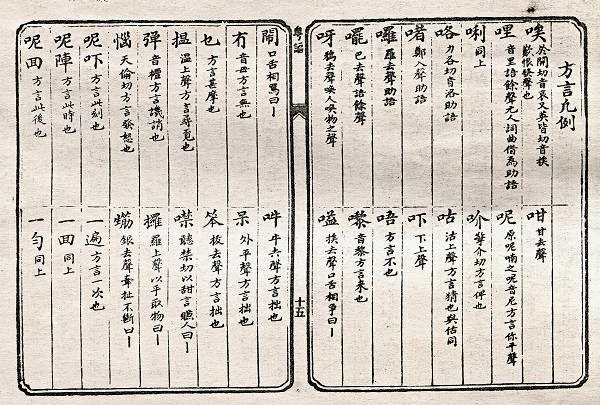 方言凡例
唉 於開切音哀又英皆切音挨歎恨發聲也
哩 音里語餘聲凡人詞曲借為助語
唎 同上
咯 力各切音洛助語
啫 鄭入聲助語
囉 羅去聲助語
罷 巴去聲語餘聲
呀 鴉去聲喚人喚物之聲
咁 甘去聲
呢 原呢喃之呢音尼方言你平聲
吤 音介切方言件也
咕 沽上聲方言猜也與估同
吓 下上聲
唔 方言不也
嚟 音黎方言來也
嗌 挨去聲口舌相爭曰一
粵謳
十五
鬧 口舌相罵曰一
冇 音毋方言無也
乜 方言甚麼也
揾 溫上聲方言尋覓也
彈 音檀方言譏誚也
惱 天倫切方言發怒也
呢吓 方言此刻也
呢陣 方言此時也
呢囬 方言此後也
吽 牛去聲方言拙也
呆 外平聲方言拙也
笨 板去聲方言拙也
噤 聽禁切以甜言賺人曰一
攞 羅上聲以手取物曰一
銀去聲牽扯不斷曰一
一遍 方言一次也
一囬 同上
一勻 同上